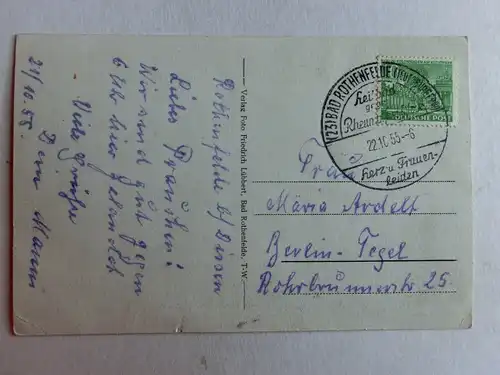 Rothenfelde b/Dissen
Liebes Frauchen!
Wir sind gut gegen
6 Uhr hier gelandet
Viele Grüße
Dein Manni
21/10.55.
Verlag Foto Friedrich Lübbert, Bad Rothenfelde, T-W
(23) BAD ROTHENFELDE (TEUTOBURGER
Heilbad
Rheuma
22.10.55-6
Herz u. Frauen-
leiden
DEUTSCHE POST
Frau
Maria Ardelt
Berlin-Tegel
Rohrbrunnerstr 25.